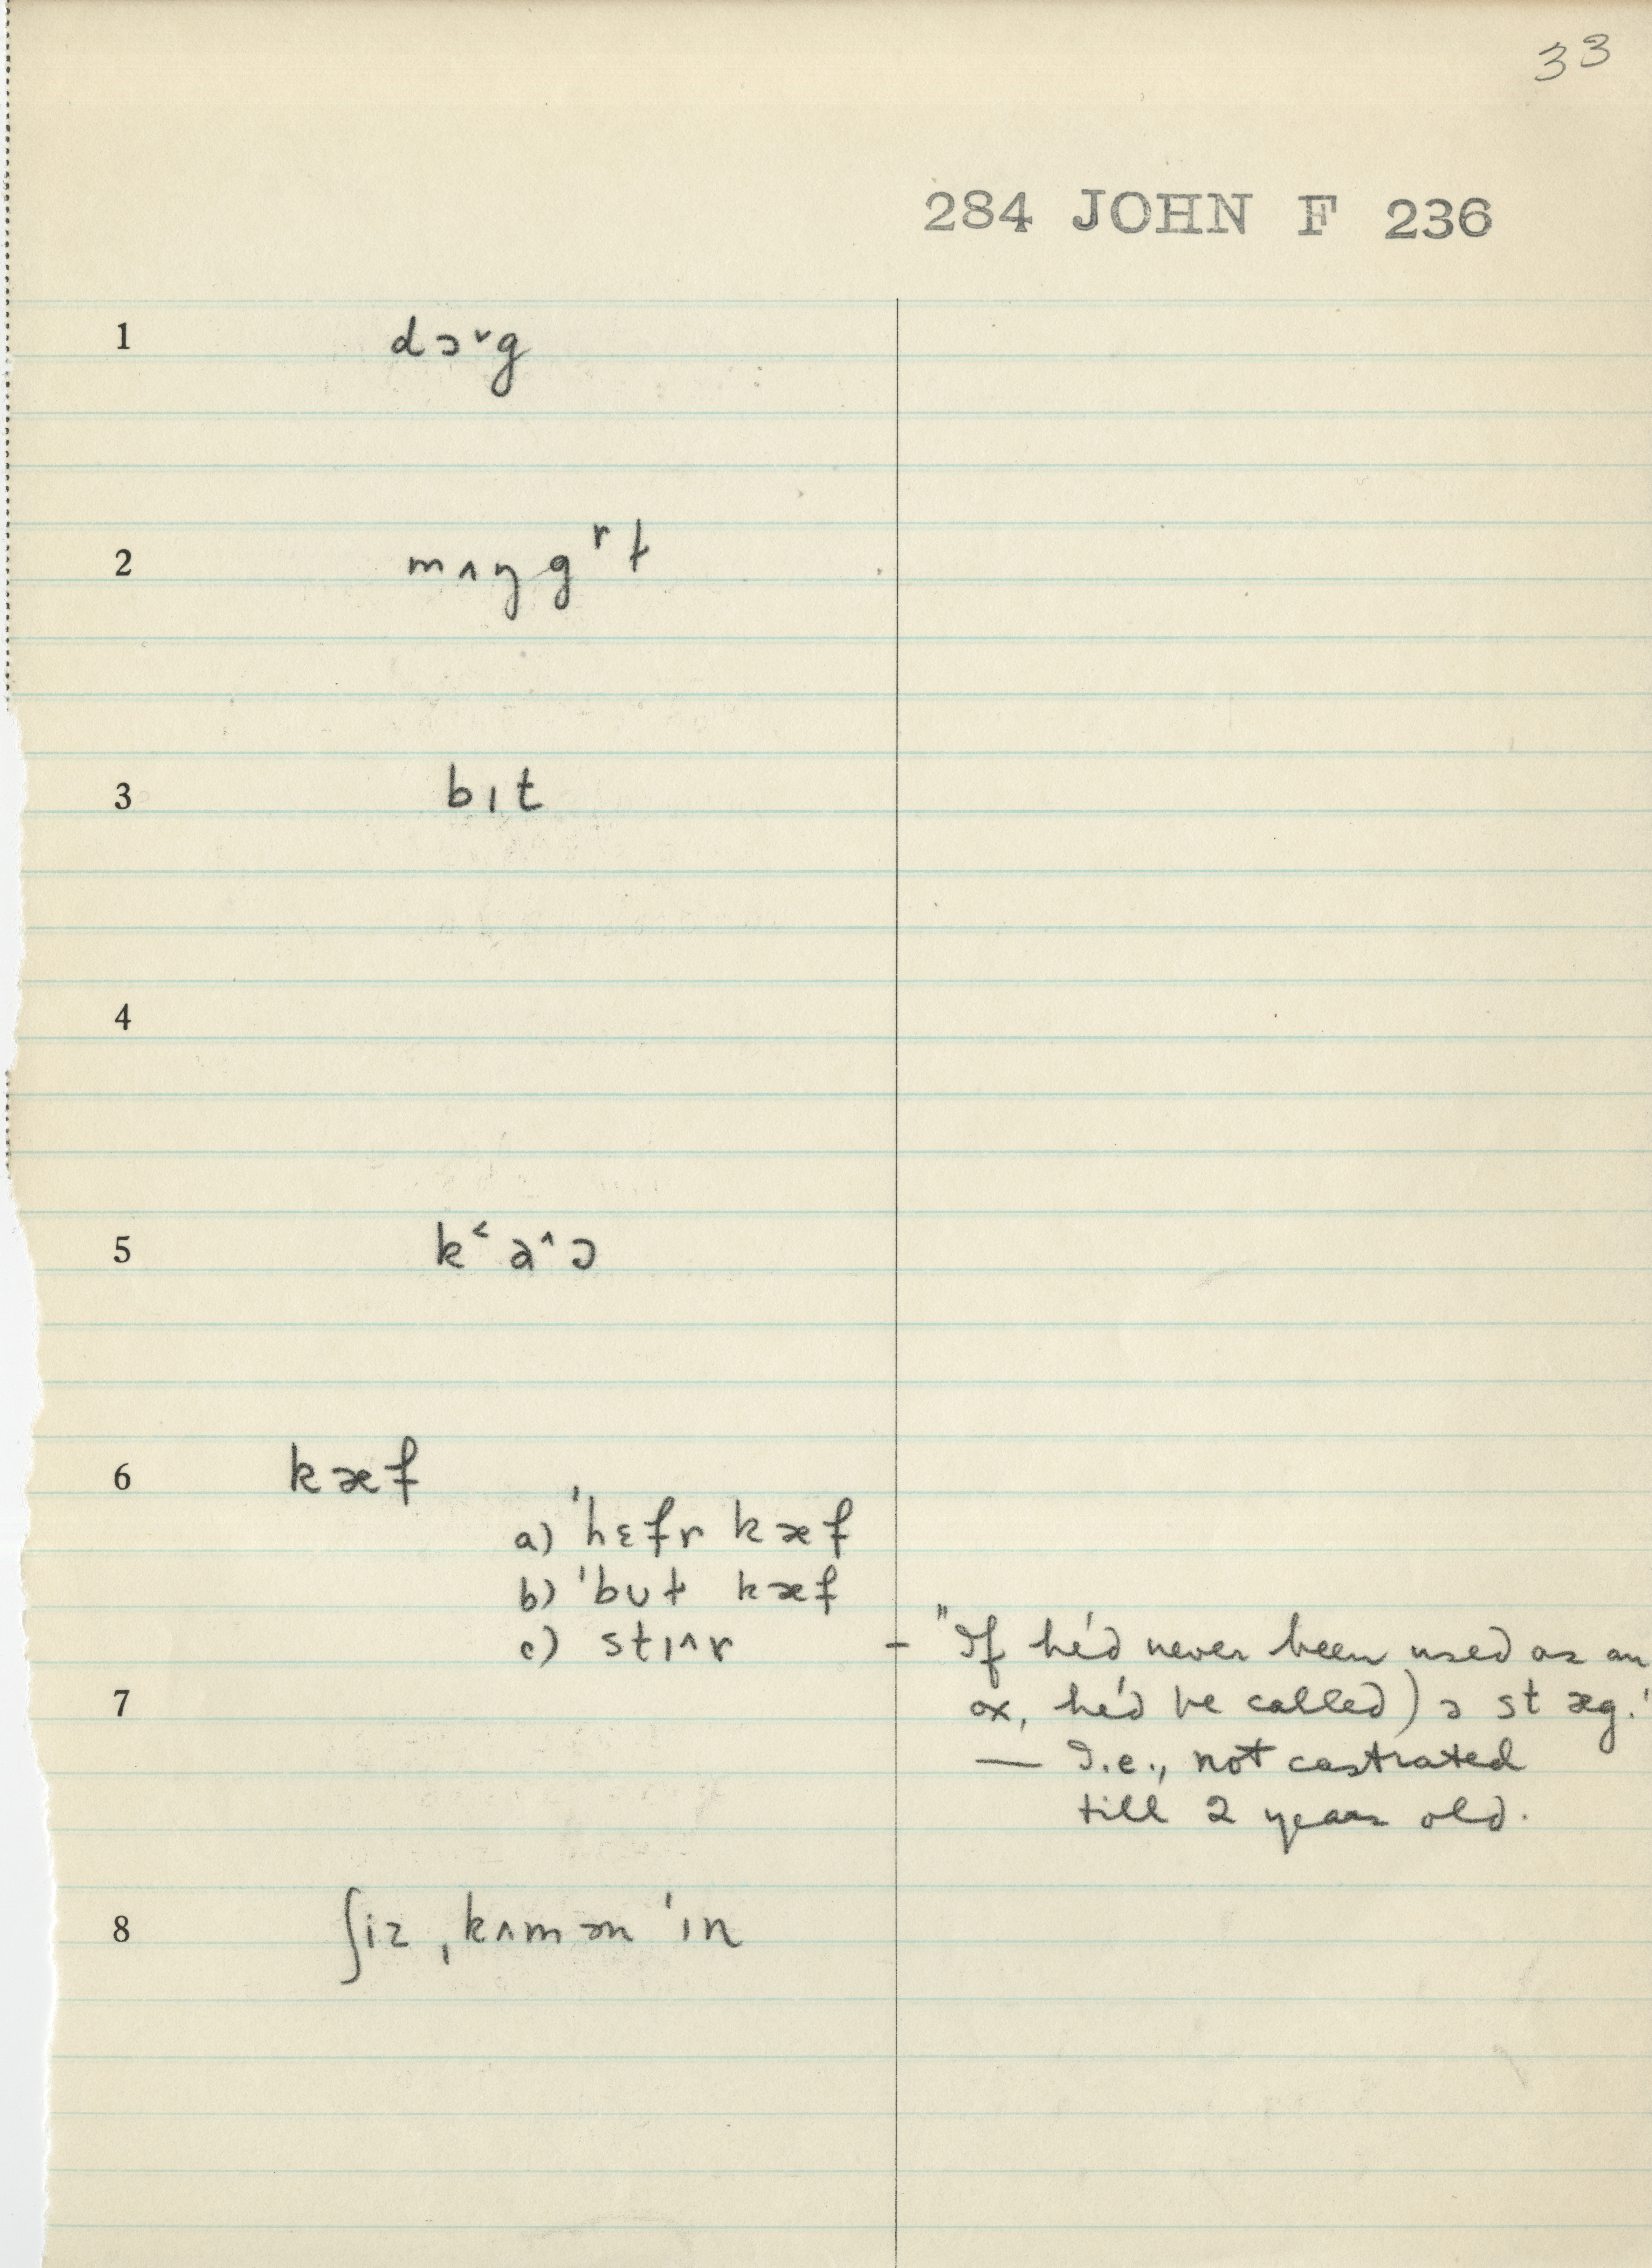 33
284 JOHN F 236
1 dɔ˅g
2 mʌŋgʳɫ
3 bɪt
4
5 k˂a˄ɔ
6 kæf
a) 'hɛfr kæf
b) 'bʊɫ kæf
c) stɪ˄r – "If he'd never been used as an
7 ox, he'd be called) ə stæg."
— I.e., not castrated
till 2 years old.
8 ʃiz ˌkʌmən 'ɪn